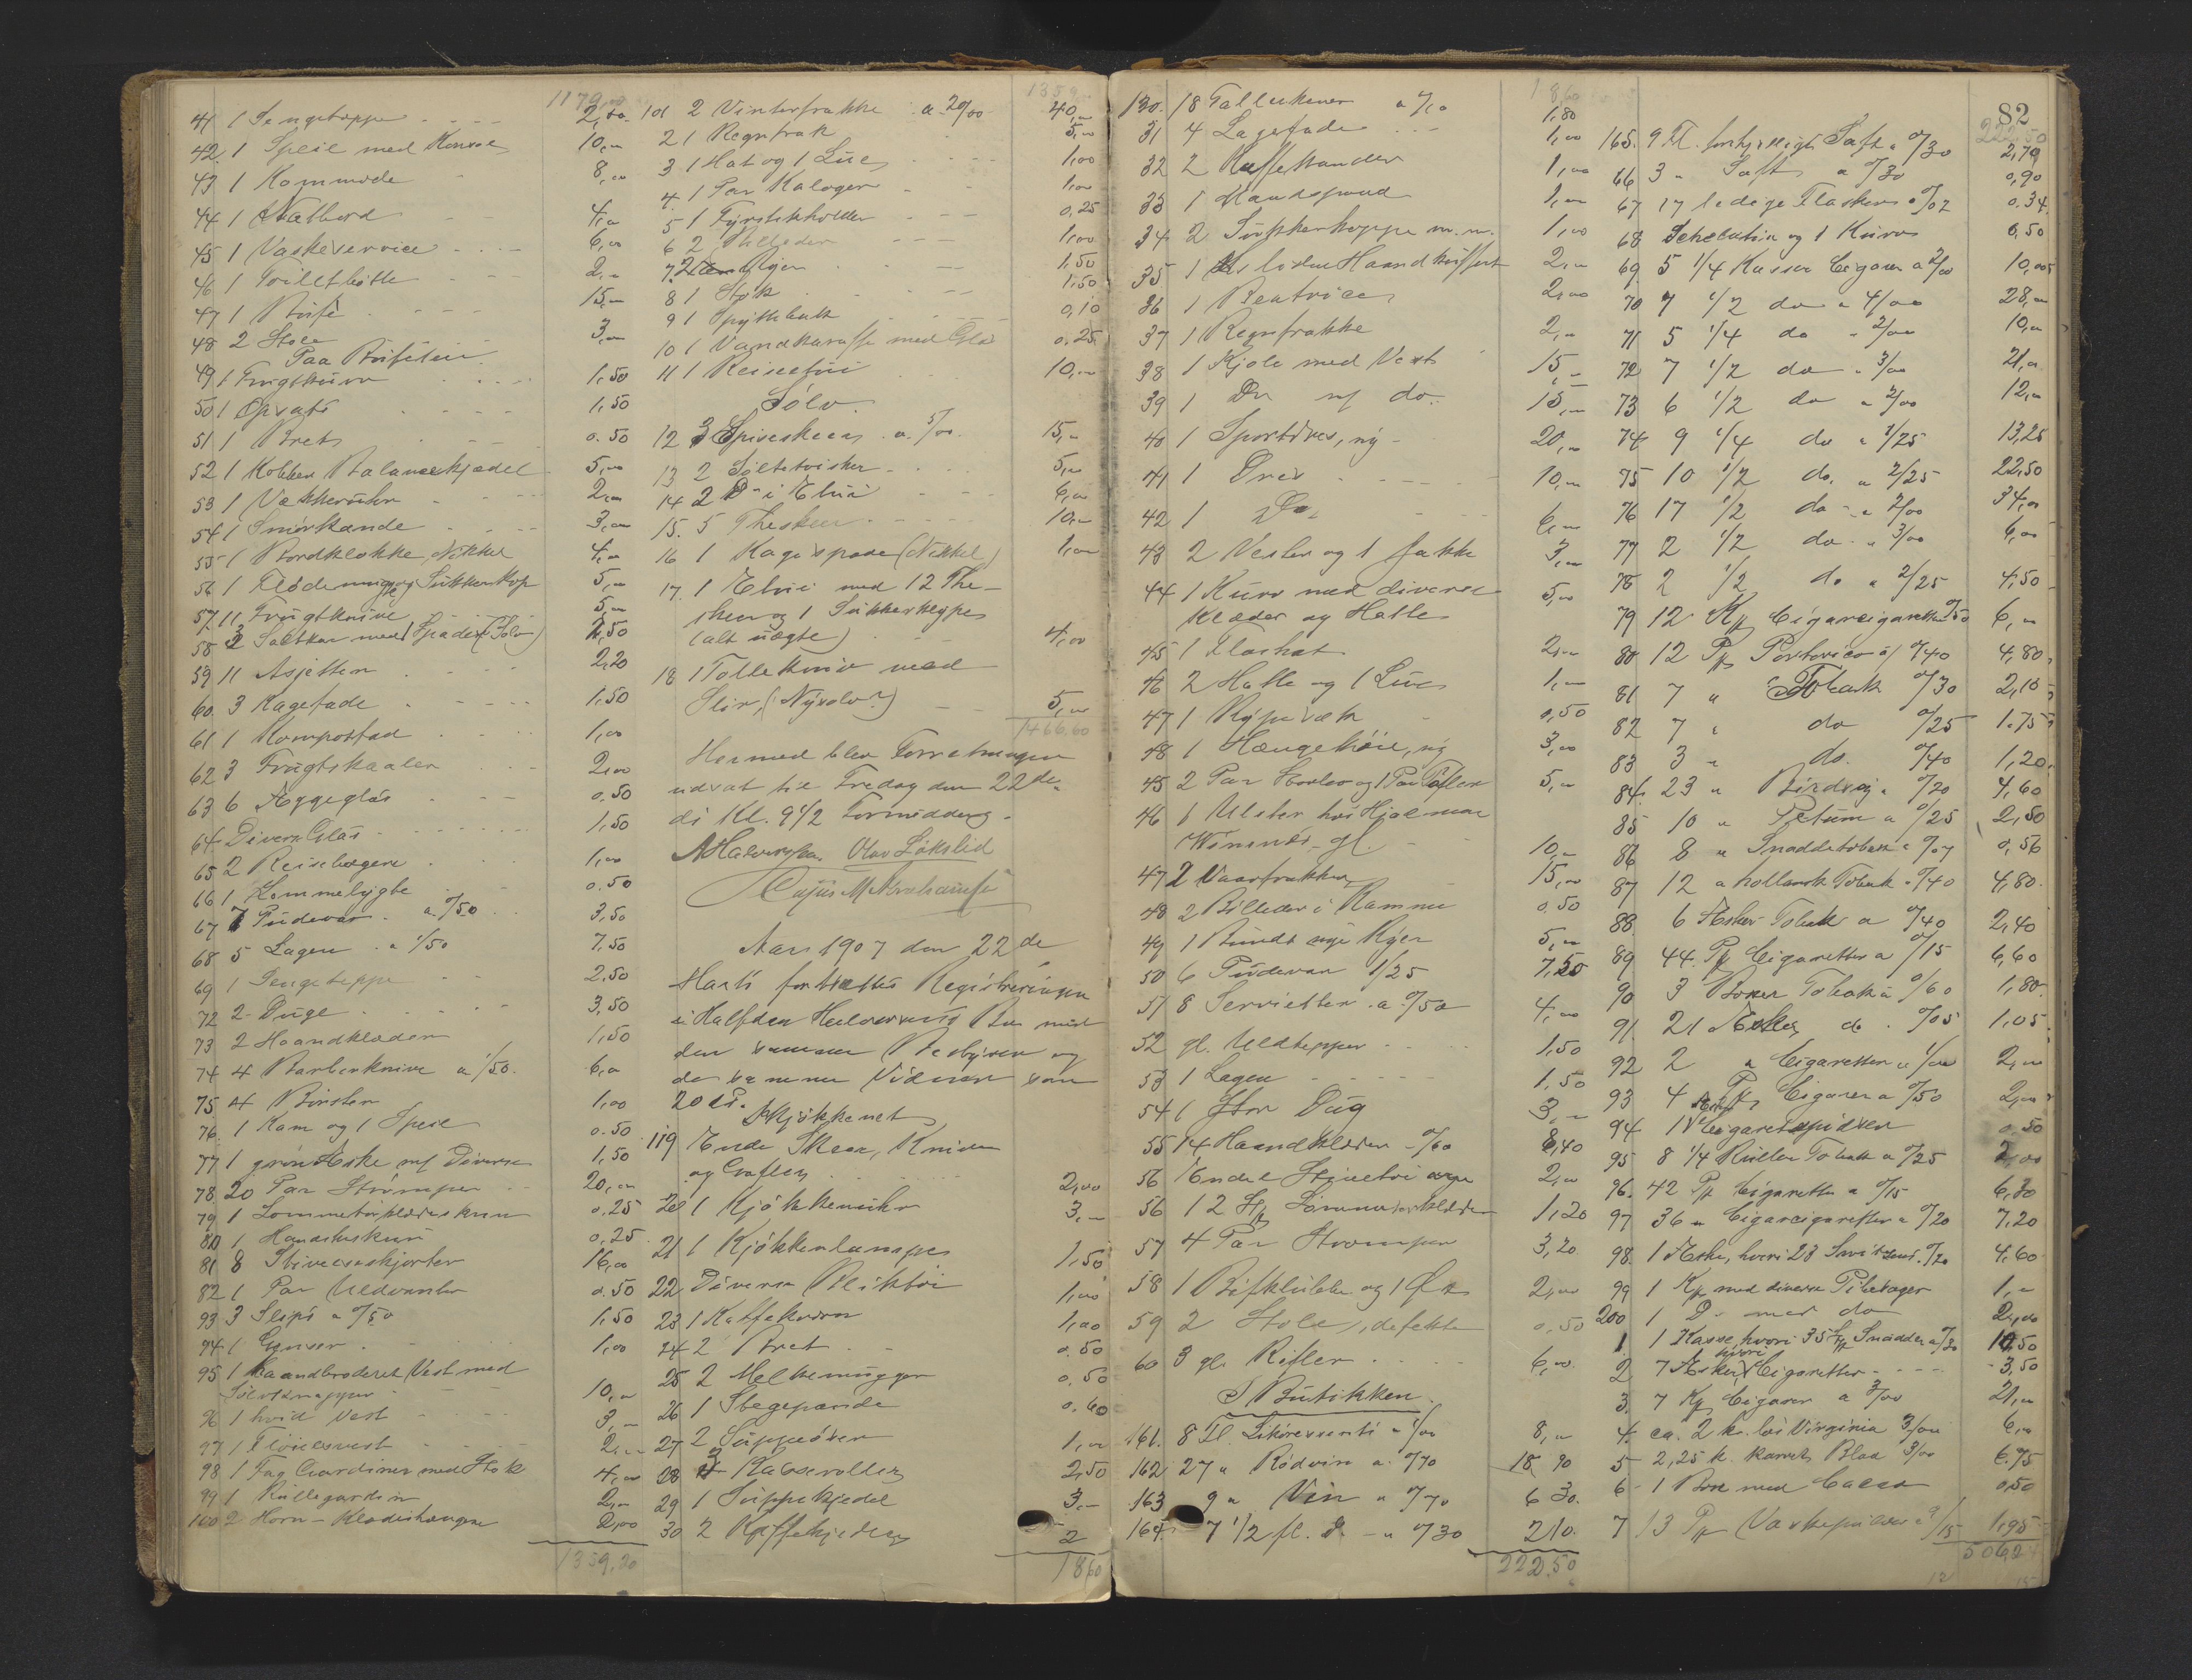 1179,00
41 1 Sengeteppe 2,50
42. 1 Speil med Konsol 10,00
43 1 Kommode 8,00
44 1 Natbord 4,00
45 1 Vaskeservice 6,00
46 1 Toiletbøtte 2,00
47 1 Büfé 15,00
48 2 Stole 3,00
Paa Büféteie
49 1 Frugtkurv 1,50
50 1 Opsats 1,50
51 1 Bret 0.50
52 1 Kobber Balancekjedel 5,00
53 1 Vækkeruhr 2,00
54 1 Smørkande 3,00
55 1 Bordklokke, Nikkel 4,00
56 1 Flødemugge og Sukkerkop 5,00
57 11 Frugtknive 5,00
58 2 Saltkar med 1 Spade (Sølv) 2,50
59 11 Asjetter 2,20
60. 3 Kagefade 1,50
61 1 Kompotfad 1,00
62 3 Frugtskaaler 2,00
63 6 Æggeglas 0.50
64 Diverse Glas 1,50
65 2 Reisebægere 1,00
66 1 Lommelygte 0.50
67 7 Pudevar a 0/50 3,50
68 5 Lagen a 1/50 7.50
69 1 Sengeteppe 2,50
72 2 Duge 3,50
73 2 Haandklæder 1,50
74 4 Barberknive a 1/50. 6,00
75 4 Børster 1,00
76. 1 Kam og 1 Speil 0.50
77 1 grøn Æske m/ Diverse 1,50
78 20 Par Strømper 20,00
79 1 Lommetørklædeskrin 0.25
80 1 Handskeskrin 0,25
81 8 Stiveskjorter 16,00
82 1 Par Uldvanter 0.50
93 3 Slips a 0/50 1,50
94 1 Genser 1,00
95 1 Haandbroderet Vest med
Sølvknapper 10,00
96 1 hvid Vest 3,00
97 1 Fløielsvest 2,00
98 1 Fag Gardiner med Stok 4,00
99 1 Rullegardin 2,00
100 2 Horn-Klædeshængere 2,00
1359,20
1359
101 2 Vinterfrakke a 20/00 40,00
2 1 Regnfrak 5,00
3 1 Hat og 1 Lue 1,00
4. 1 Par Kalosger 1,00
5 1 Fyrstikholder 0,25
6 2 Billeder 1,00
1,50
8 1 Stok 1,50
9 1 Spyttebak 0,10
10 1 Vandkaraffe med Glas 0,25
11 1 Reiseetui 10,00
Sølv.
12 3 Spiseskeer a. 5/00. 15,00
13 2 Syltetøisker 5,00
14 2 Do i Etui 6,00
15. 5 Theskeer 10,00
16 1 Kagespade (Nikkel) 1,00
17. 1 Etui med 12 The-
skeer og 1 Sukkerklype
(alt uægte) 4,00
18 1 Tollekniv med
Slir, (Nysølv?) 5,00
1466.60
Hermed blev Forretningen
udsat til Fredag den 22de
ds Kl. 9 1/2 Formiddag.
A Halvorsen. Olav Løkslid
Cajus M Abrahamsen
Aar 1907 den 22de
Marts fortsattes Registreringen
i Halfdan Halvorsens Bo med
den samme Bestyrer og
de samme Vidner som
20 ds. Kjøkkenet
119 Endel Skeer, Kniver
og Gafler 2,00
20 1 Kjøkkenuhr 3,00
21 1 Kjøkkenlampe 1,50
22 Diverse Bliktøi 1,00
23 1 Kaffekvern 1,00
24 2 Bret 0.50
25 2 Melkemugger 0.50
26 1 Stegepande 0,60
27 2 Suppeøser 1,00
28 3 Kasseroller 2,50
29 1 Suppekjedel 3,00
30 2 Kaffekjedler 2
1860
1860
130. 18 Tallerkener a 0/10 1,80
31 4 Lagefade 1,00
32 2 Kaffekander 1,00
33 1 Mandspand 1,00
34 2 Sukkerkoppe m. m. 1,00
35 1 Haandkuffert 2,00
36 1 Beatrice 2,00
37 1 Regnfrakke 2,00
38 1 Kjole med Vest 15,00
39 1 Do m/ do. 15,00
40 1 Sportdres, ny 20,00
41 1 Dres 10,00
42 1 Do. 6,00
43 2 Vester og 1 Jakke 3,00
44 1 Kurv med diverse
Klæder og Hatte 5,00
45 1 Floshat 2,00
46 2 Hatte og 1 Lue 1,00
47 1 Rypesæk 0,50
48 1 Hængekøie, ny 3,00
45 2 Par Støvler og 1 Par Tøfler 5,00
46 1 Ulster hos Hjalmar
Wimnes gl. 10,00
47 2 Vaarfrakker 15,00
48 2 Billeder i Ramme 0.50
49 1 Bundt nye Ryer 5,00
50 6 Pudevar 1/25 7,50
51 8 Servietter a 0/50 4,00
52 gl. Uldtepper 1,50
53 1 Lagen 1.50
54 1 stor Dug 3,00
55 14 Haandklæder - 0/60 8,40
56 Endel Stivetøi 2,00
56 12 Stk Lommetørklæder 1,20
57 4 Par Strømper 3,20
58 1 Bifklubbe og 1 Øx 2,00
59 2 Stole, defekte 0,50
60 3 gl. Rifler 6,00
I Butikken
161. 8 Fl. Likøressents a 1/00 8,00
162 27 " Rødvin a 0/70 18,90
163 9 " Vin a 0/70 6 30.
164 7 1/2 fl. do - a 0/30 2 10.
222.50
82
222,50
165. 9 Fl. forskjelligt Saft a 0/30 2,70
66 3 " Saft a 0/30 0,90
67 17 ledige Flasker a 0/02 0.34.
68 og 1 Kurv 0,50
69 5 1/4 Kasser Cigarer a 2/00 10,00
70 7 1/2 do a 4/00 28,00
71 5 1/4 do " 2/00 10,00
72 7 1/2 do " 3/00 21,00
73 6 1/2 do a 2/00 12,00
74 9 1/4 do a 1/25 13,25
75 10 1/2 do. a 2/25 22,50
76 17 1/2 do - a 2/00 34,00
77 2 1/2 do - a 3/00 6,00
78 2 1/2 do a 2/25 4,50
79 12 Kp Cigarcigaretter 0/50 6,00
80 12 Pk Portorico a 0/40 4,80
81 7 " Tobak 0/30 2,10
82 7 " do 0/25 1.75
83 3 " do. 0/40 1,20
84. 23 " Birdseye 0/20 4,60
85 10 " Petum a 0/25 2,50
86 8 " Snaddetobak a 0/07 0,56
87 12 " hollandsk Tobak a 0/40 4,80.
88. 6 Æsker Tobak a 0/40 2,40
89 44. Pk Cigaretter a 0/15 6,60
90 3 Boxer Tobak a 0/60 1,80.
91. 21 Æsker do. 0/05 1,05
92 2 " Cigaretter a 1/00 2,00
93 4 Pk Cigarer a 0/50 2,00
94 1 Æske Cigaretspidser 0.50
95 8 1/4 Ruller Tobak a 0/25 2,00
96. 42 Pk Cigaretter a 0/15 6,30
97 36 " Cigarcigaretter a 0/20 7,20
98. 1 Æske, hvori 23 0/20 4,60
99 1 Kp med diverse Piberager 1,00
200 1 Do med do 2,00
1 1 Kasse, hvori 35 Stk Snadder a 0/30 10,50
2 7 Æsker hvori Cigaretter 3,50
3. 7 Kp Cigarer a 3/00 21,00
4. ca. 2 k. løs Virginia 3/00 6,00
5 2,25 k. karvet Blad 3/00 6.75
6 1 Box med Cacao 0,50
7 13 Pk Vaskepulver a 0/15 1,95
506,24